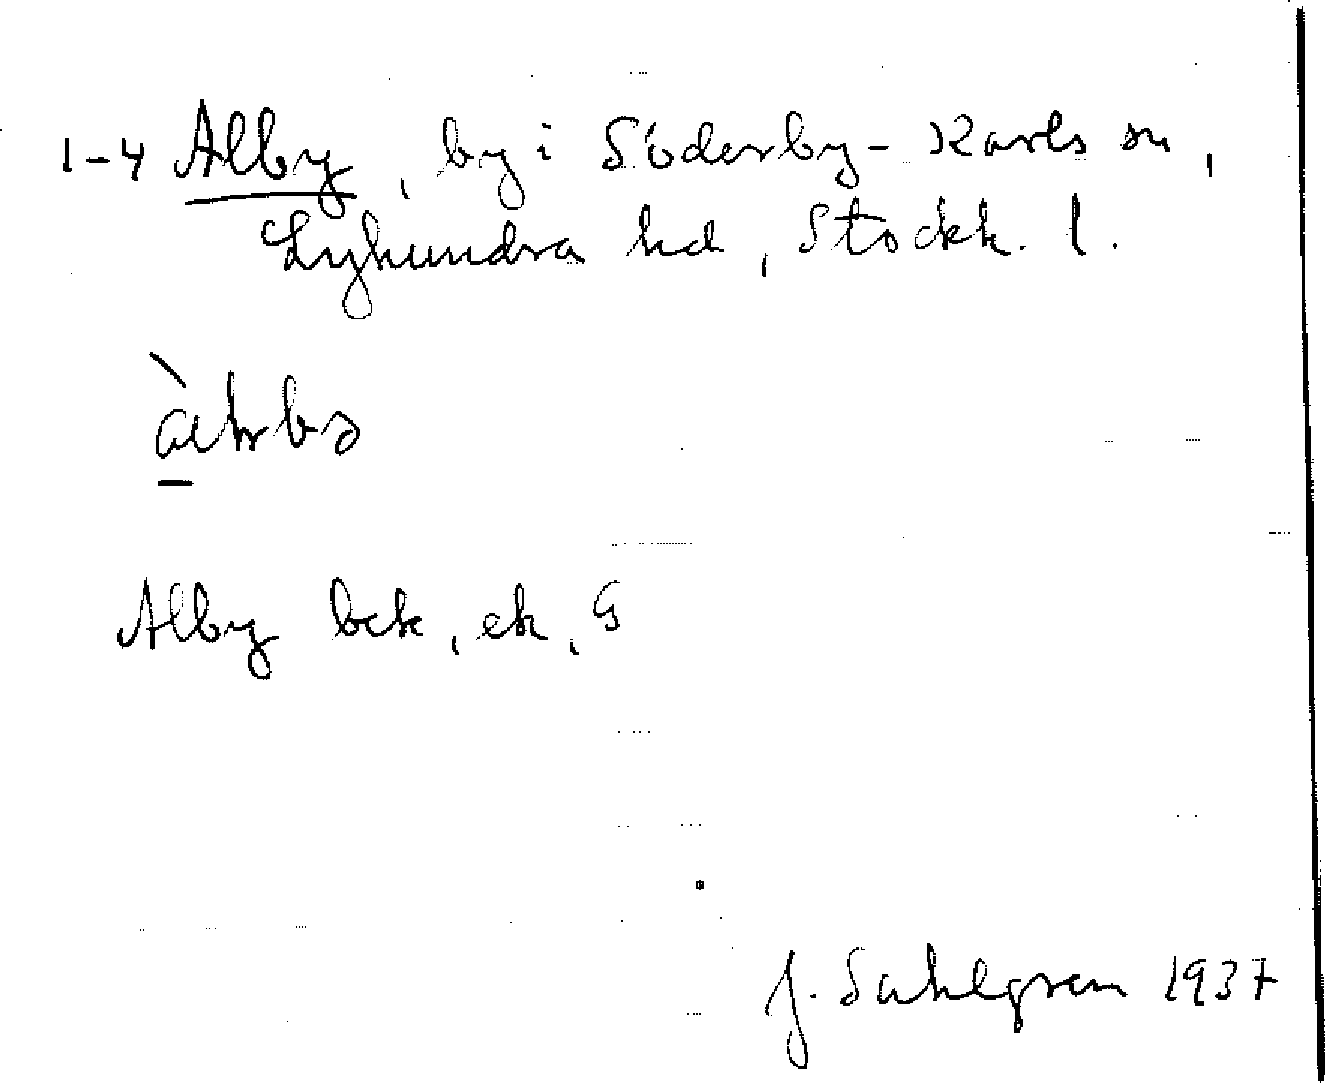 1-4 Alby, by i Söderby-Karls sn,
Lyhundra hd, Stockh. l.
Alby bek, ek, G
J. Sahlgren 1937